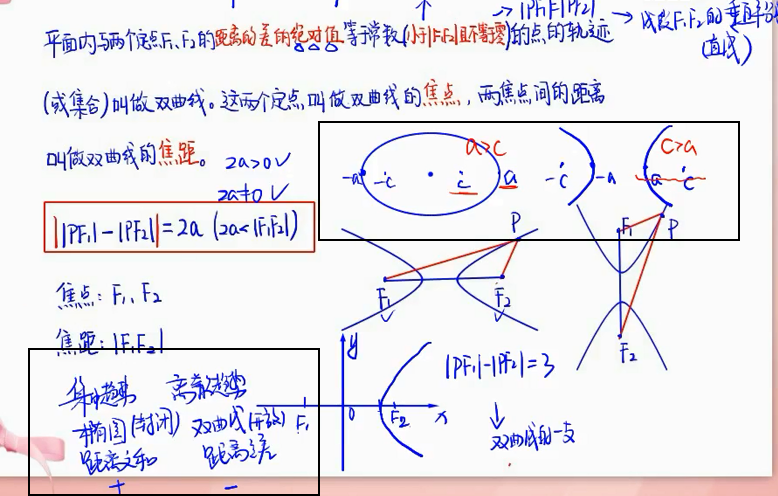 |PF₁|-|PF₂|
→ 线段F₁F₂的垂直平分
(直线)
平面内与两个定点F₁、F₂的距离的差的绝对值等于常数(小于|F₁F₂|且不等于零)的点的轨迹
(或集合)叫做双曲线。这两个定点叫做双曲线的焦点，两焦点间的距离
叫做双曲线的焦距。
2a>0✓
2a≠0✓
||PF₁|-|PF₂||=2a (2a<|F₁F₂|)
a>c
-a -c c a
-c -a
c>a
a c
P
F₁ F₂
F₁ P
F₂
焦点：F₁、F₂
焦距：|F₁F₂|
y
|PF₁|-|PF₂|=3
F₁ 0 F₂ x
↓
双曲线的一支
集中趋势 离散趋势
椭圆(封闭) 双曲线(开放)
距离之和 距离之差
+ -